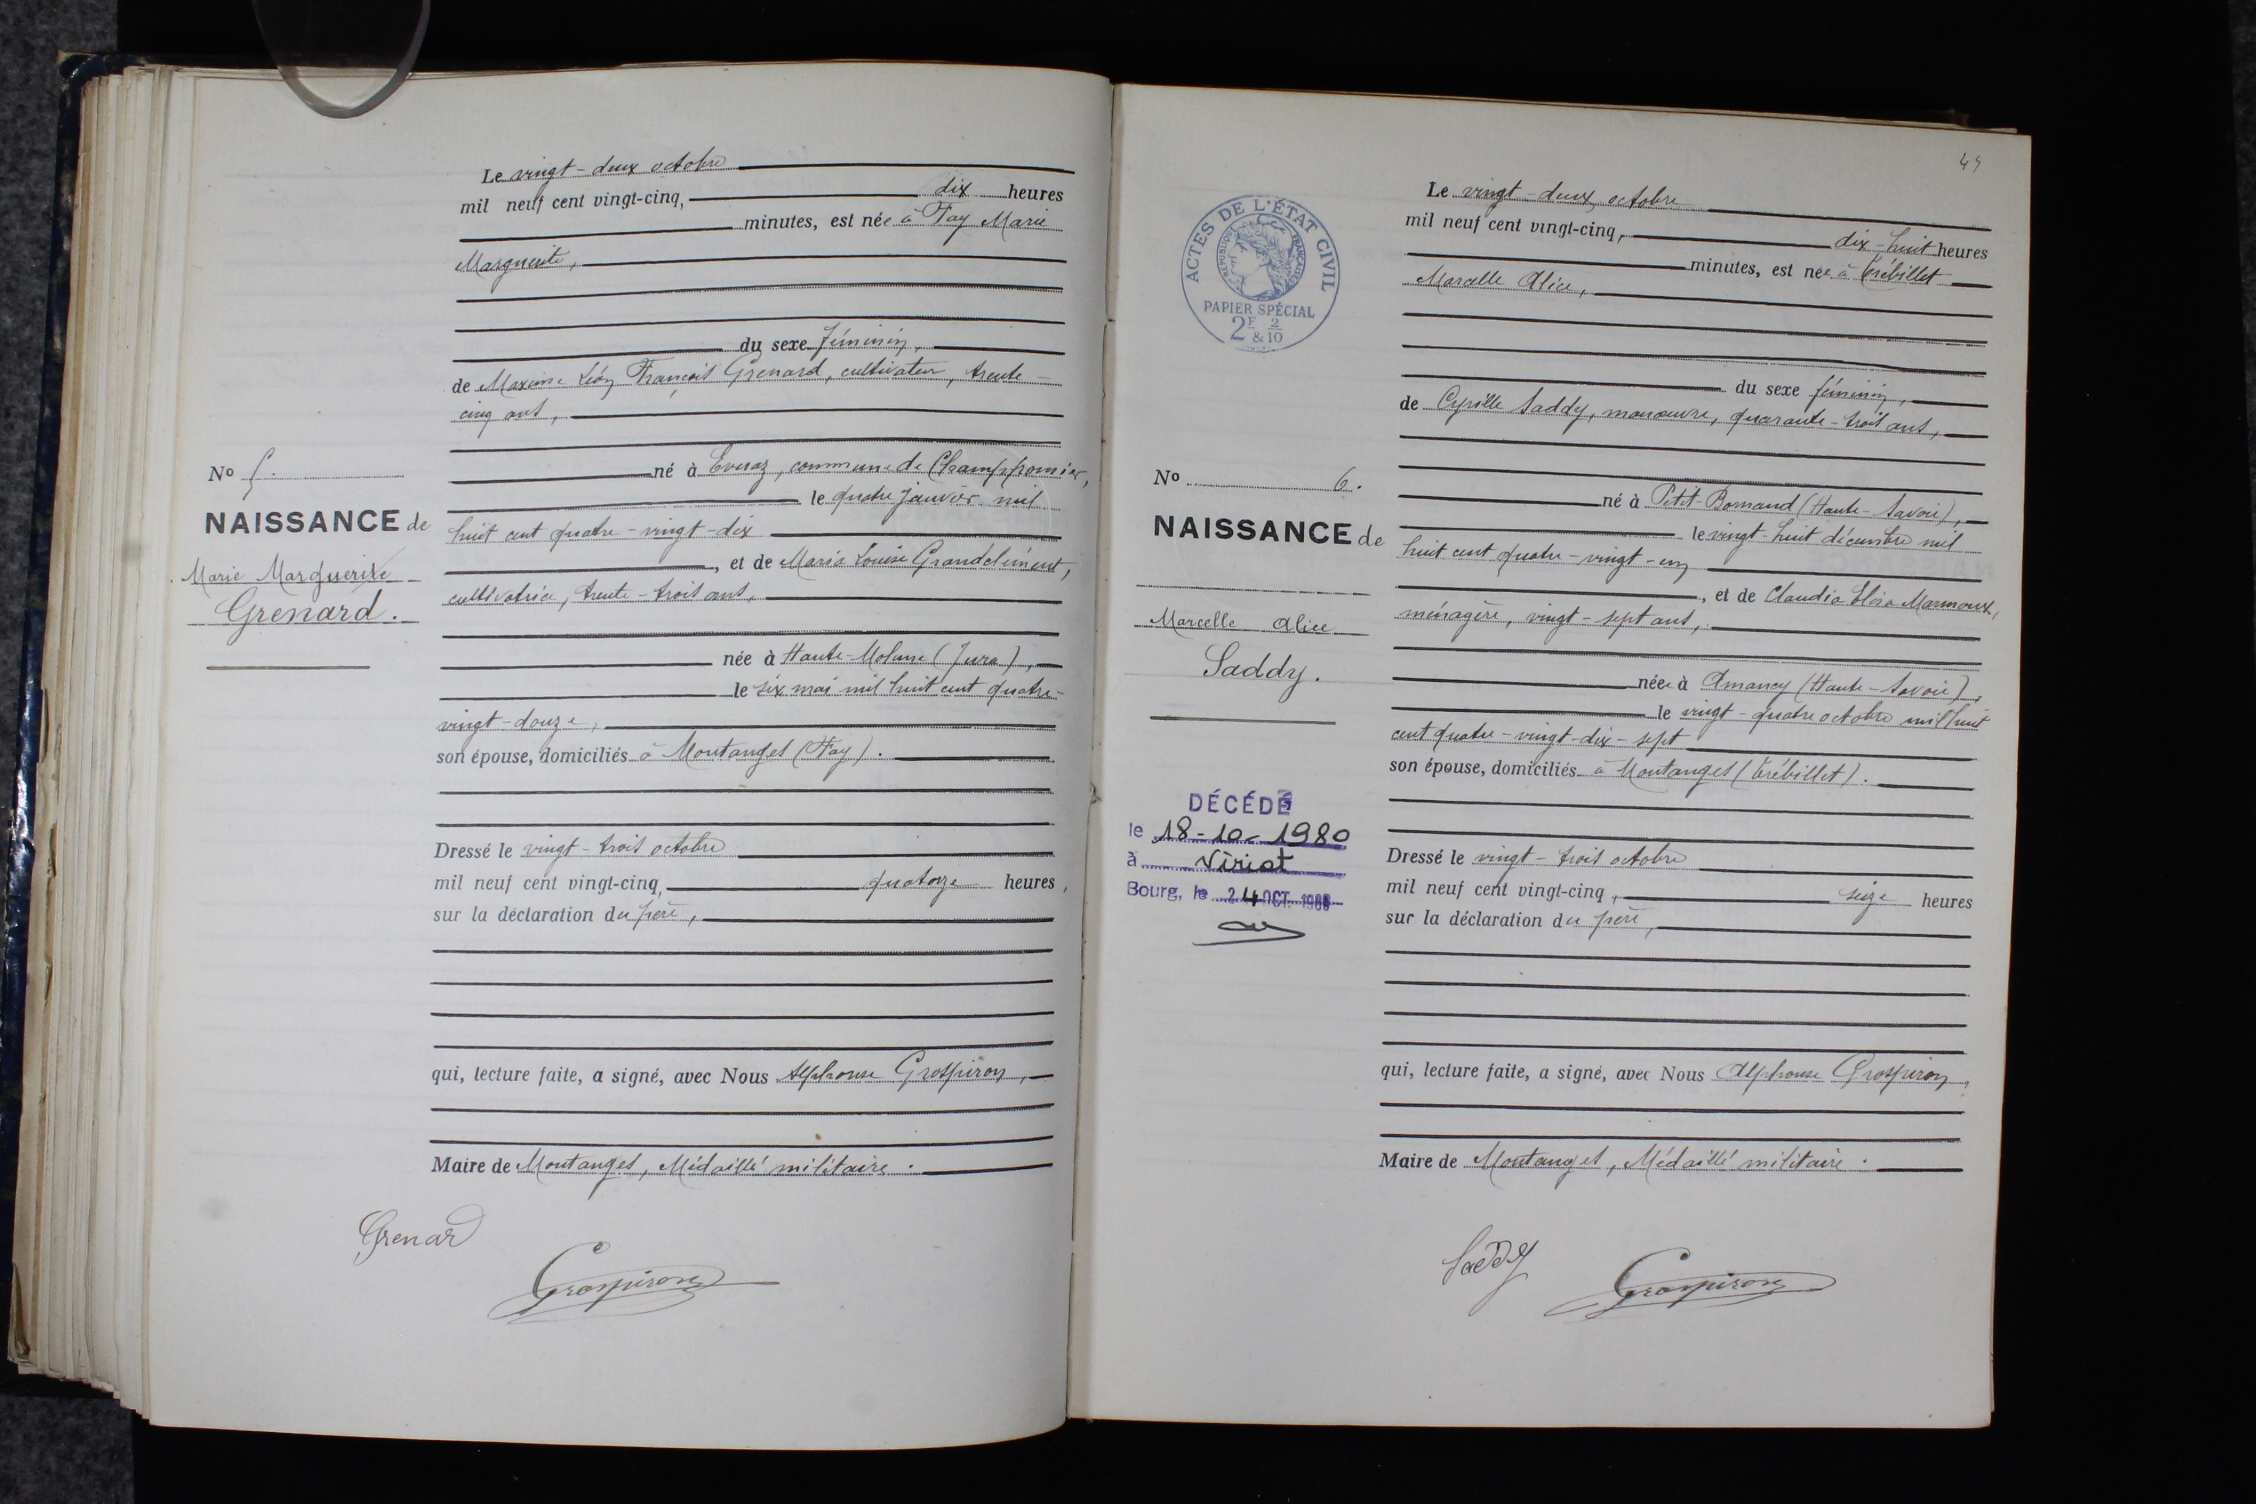 Le vingt-deux octobre
mil neuf cent vingt-cinq, dix heures
minutes, est née à Fay Marie
Marguerite,
du sexe féminin,
de Maxime Léon François Grenard, cultivateur, trente-
cinq ans,
No 5.
né à Evuaz, commune de Champfromier,
le quatre janvier mil
NAISSANCE de
huit cent quatre-vingt-dix
, et de Maria Louise Grandclément,
Marie Marguerite
cultivatrice, trente-trois ans,
Grenard.
née à Haute-Molune (Jura),
le six mai mil huit cent quatre-
vingt-douze,
son épouse, domiciliés à Montanges (Fay).
Dressé le vingt-trois octobre
mil neuf cent vingt-cinq, quatorze heures,
sur la déclaration du père,
qui, lecture faite, a signé, avec Nous Alphonse Grospiron,
Maire de Montanges, Médaillé militaire.
Grenard
Grospiron
ACTES DE L'ÉTAT CIVIL
RÉPUBLIQUE FRANÇAISE
PAPIER SPÉCIAL
2F & 2/10
Le vingt-deux octobre
mil neuf cent vingt-cinq, dix-huit heures
minutes, est née à Trébillet
Marcelle Alice,
du sexe féminin,
de Cyrille Saddy, manœuvre, quarante-trois ans,
No 6.
né à Petit-Bornand (Haute-Savoie),
NAISSANCE de
le vingt-huit décembre mil
huit cent quatre-vingt-un
, et de Claudia Marmoux,
Marcelle Alice
ménagère, vingt-sept ans,
Saddy.
née à Amancy (Haute-Savoie),
le vingt-quatre octobre mil huit
cent quatre-vingt-dix-sept
son épouse, domiciliés à Montanges (Trébillet).
DÉCÉDÉ
le 18-10-1980
à Viriat
Bourg, le 24 OCT. 1980
Dressé le vingt-trois octobre
mil neuf cent vingt-cinq, seize heures
sur la déclaration du père,
qui, lecture faite, a signé, avec Nous Alphonse Grospiron,
Maire de Montanges, Médaillé militaire.
Saddy
Grospiron